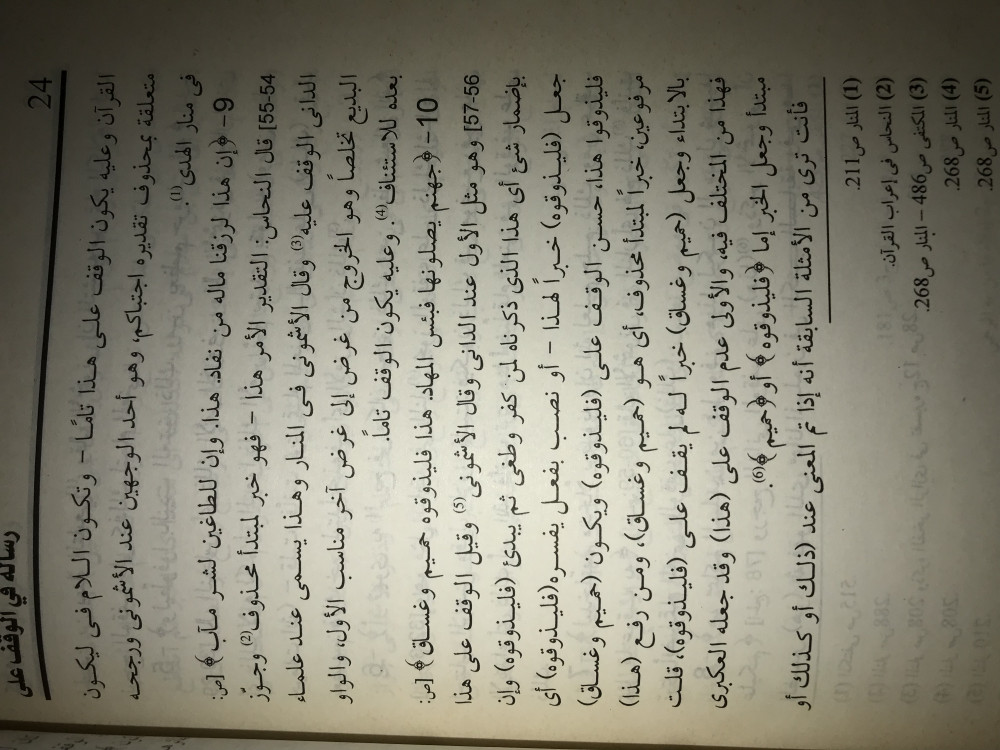 24
رسالة في الوقف على
القرآن وعليه يكون الوقف على هذا تامًا - وتكون اللام فى ليكون
متعلقة بمحذوف تقديره اجتباكم، وهو أحد الوجهين عند الأشمونى ورجحه
فى منار الهدى(1).
9- ﴿إن هذا لرزقنا ماله من نفاد. هذا. وإن للطاغين لشر مـآب﴾ [ص:
54-55] قال النحاس: التقدير الأمر هذا - فهو خبر لمبتدأ محذوف(2) وجوّز
الدانى الوقف عليه(3) وقال الأشمونى فى المنار وهذا يسمى عند علماء
البديع تخلصاً وهو الخروج من غرض إلى غرض آخر مناسب الأول، والواو
بعده للاستئناف(4). وعليه يكون الوقف تاماً.
10- ﴿جهنم يصلونها فبئس المهاد. هذا فليذوقوه حميم وغساق﴾ [ص:
56-57] وهو مثل الأول عند الدانى وقال الأشمونى(5) وقيل الوقف على هذا
بإضمار شئ أى هذا الذى ذكرناه لمن كفر وطغى ثم يبدئ (فليذوقوه) وإن
جعل (فليذوقوه) خبراً لهذا - أو نصب بفعل يفسره (فليذوقوه) أى
فليذوقوا هذا، حسن الوقف على (فليذوقوه) ويكون (حميم وغساق)
مرفوعين، خبراً لمبتدأ محذوف، أى هو (حميم وغساق)، ومن رفع (هذا)
بالابتداء وجعل (حميم وغساق) خبراً له لم يقف على (فليذوقوه)، قلت
فهذا من المختلف فيه، والأولى عدم الوقف على (هذا) وقد جعله العكبرى
مبتدأ وجعل الخبر إما ﴿فليذوقوه﴾ أو ﴿حميم﴾(6).
فأنت ترى من الأمثلة السابقة أنه إذا تم المعنى عند (ذلك أو كذلك أو
(1) المنار ص211.
(2) النحاس فى اعراب القرآن.
(3) المكتفى ص486 – المنار ص268.
(4) المنار ص268.
(5) المنار ص268.